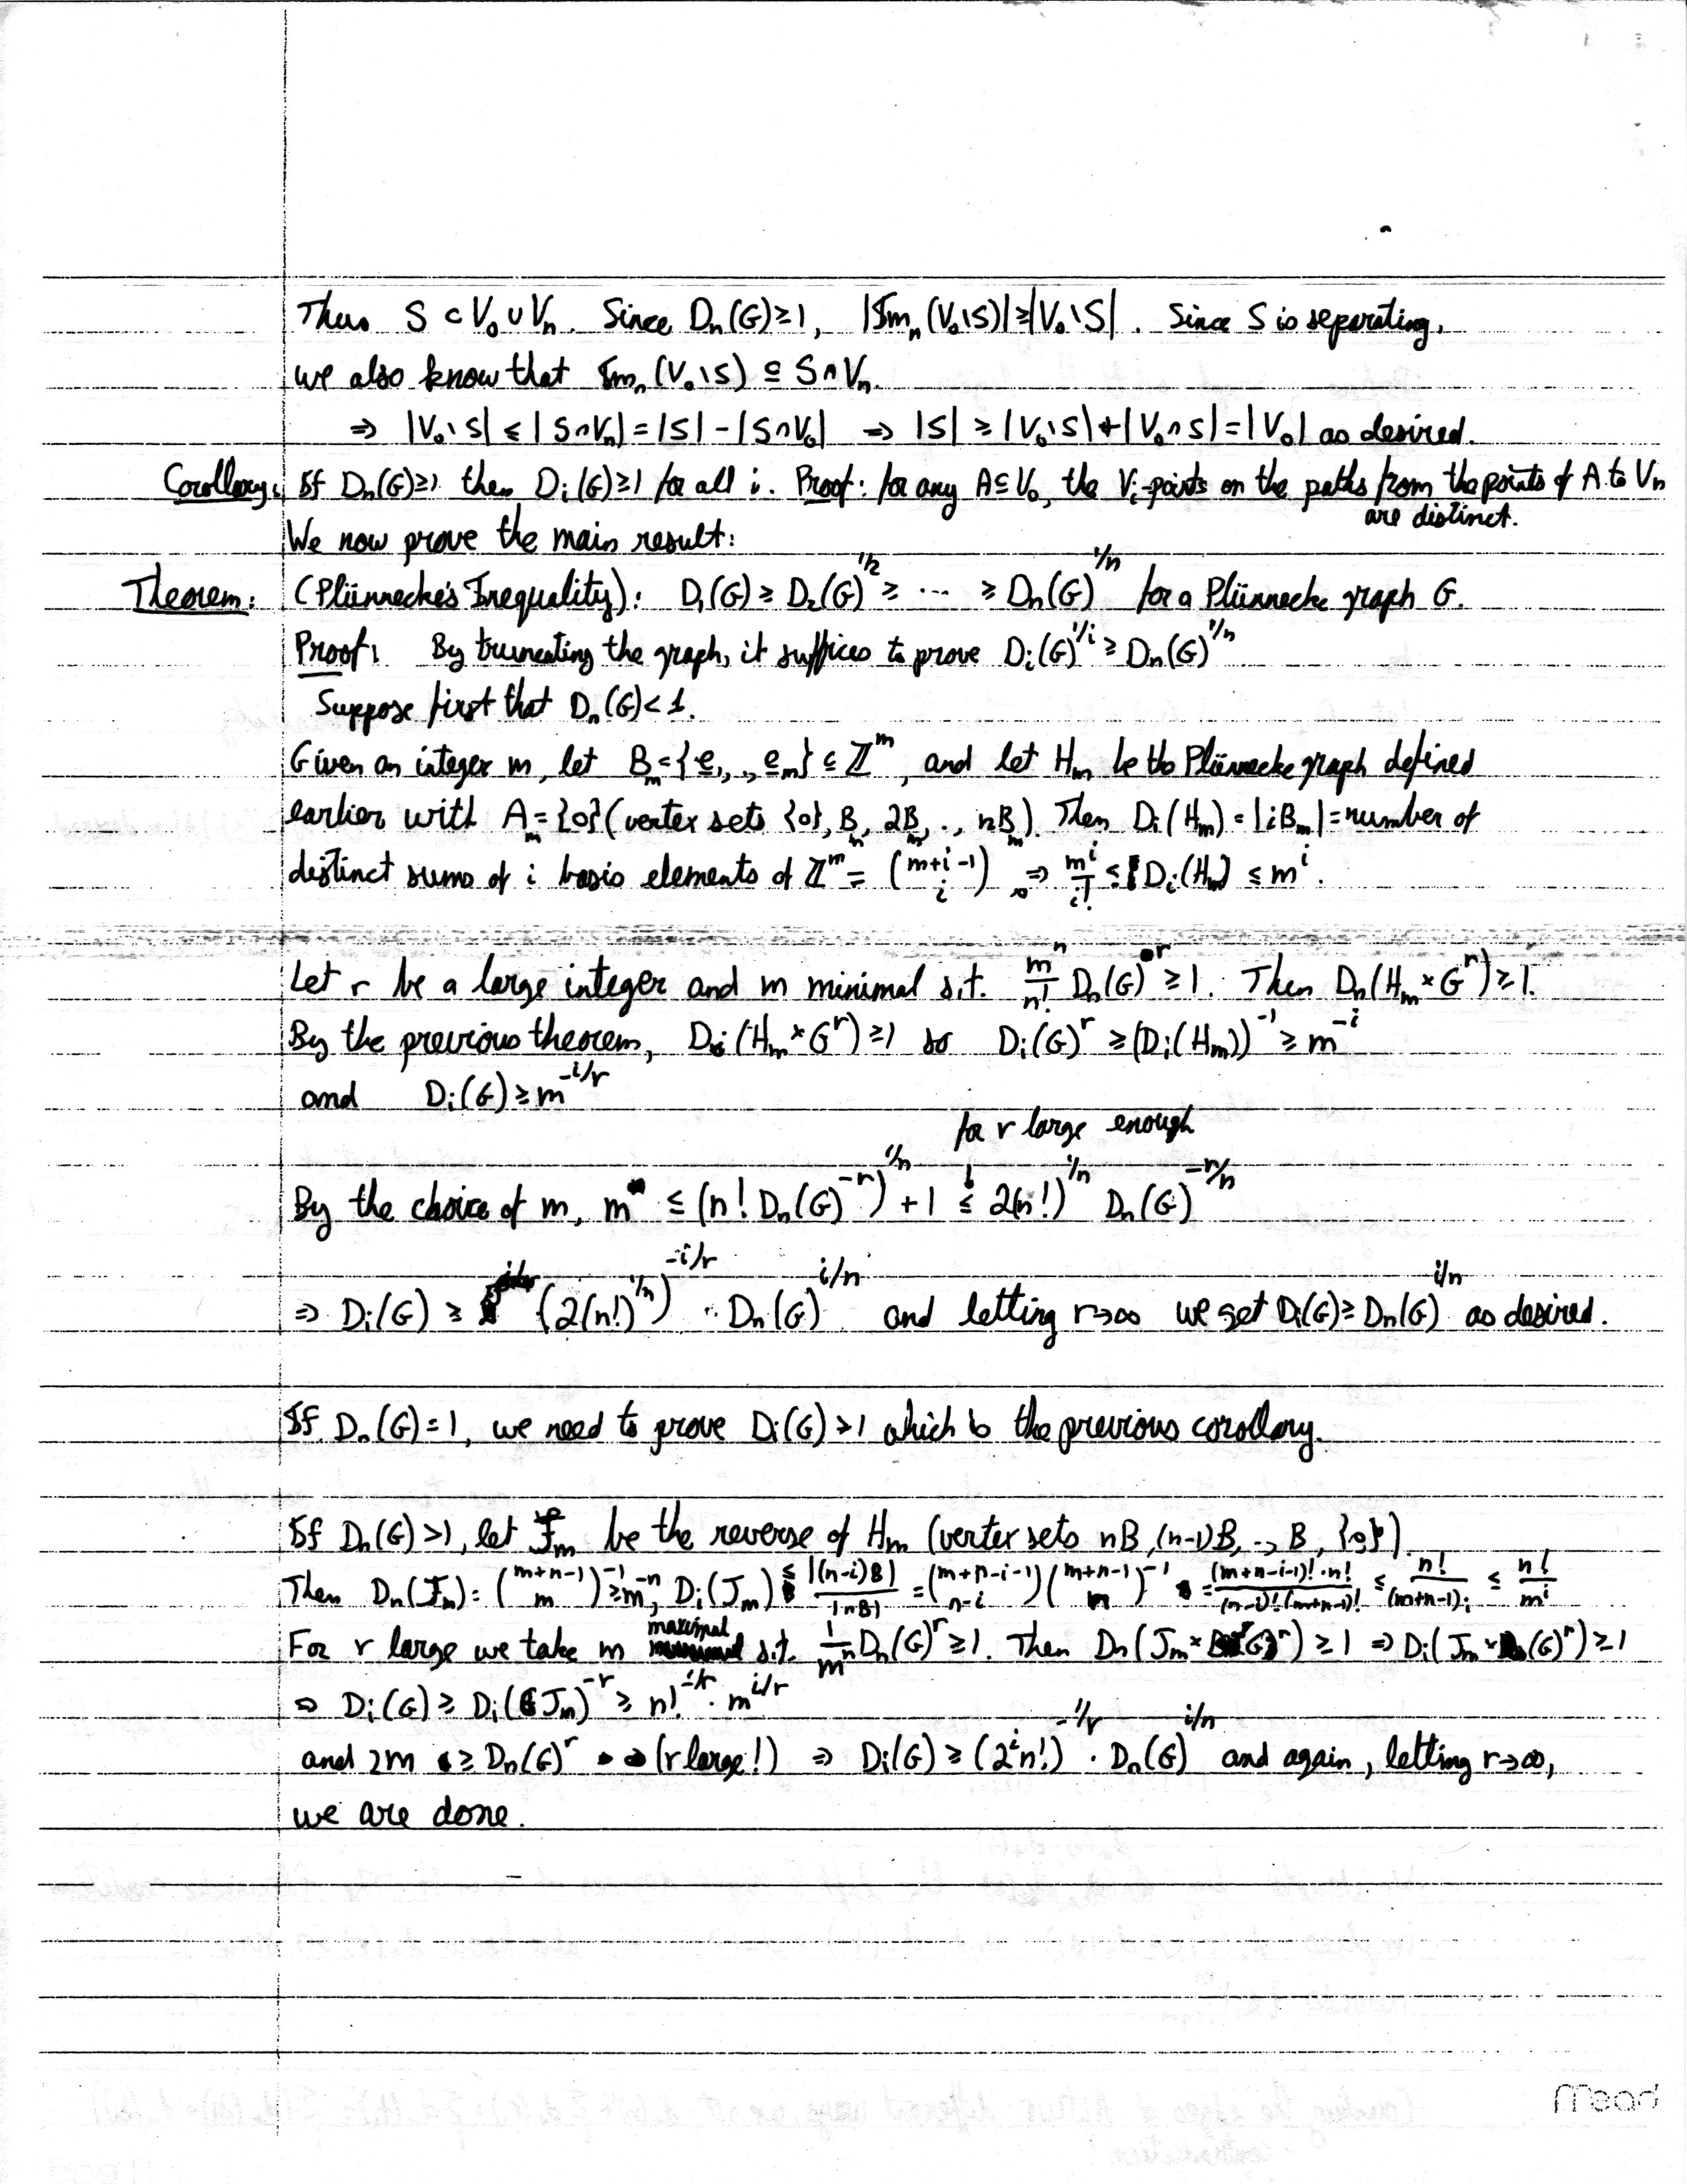 Thus S ⊂ V₀ ∪ Vₙ. Since Dₙ(G) ≥ 1, |Imₙ(V₀\S)| ≥ |V₀\S|. Since S is separating,
we also know that Imₙ(V₀\S) ⊆ S∩Vₙ.
⇒ |V₀\S| ≤ |S∩Vₙ| = |S| - |S∩V₀| ⇒ |S| ≥ |V₀\S| + |V₀∩S| = |V₀| as desired.
Corollary: If Dₙ(G)≥1 then Dᵢ(G)≥1 for all i. Proof: for any A⊆V₀, the Vᵢ-points on the paths from the points of A to Vₙ
are distinct.
We now prove the main result:
Theorem: (Plünnecke's Inequality): D₁(G) ≥ D₂(G)^{1/2} ≥ ... ≥ Dₙ(G)^{1/n} for a Plünnecke graph G.
Proof: By truncating the graph, it suffices to prove Dᵢ(G)^{1/i} ≥ Dₙ(G)^{1/n}
Suppose first that Dₙ(G) < 1.
Given an integer m, let B_m = {e₁,.., e_m} ⊆ ℤ^m, and let H_m be the Plünnecke graph defined
earlier with A_m = {0} (vertex sets {0}, B_m, 2B_m, .., nB_m). Then Dᵢ(H_m) = |iB_m| = number of
distinct sums of i basis elements of ℤ^m = \binom{m+i-1}{i} so ⇒ \frac{m^i}{i!} ≤ Dᵢ(H_m) ≤ m^i.
Let r be a large integer and m minimal s.t. \frac{m^n}{n!} Dₙ(G)^r ≥ 1. Then Dₙ(H_m × G^r) ≥ 1.
By the previous theorem, Dᵢ(H_m × G^r) ≥ 1 so Dᵢ(G)^r ≥ (Dᵢ(H_m))^{-1} ≥ m^{-i}
and Dᵢ(G) ≥ m^{-i/r}
for r large enough
By the choice of m, m ≤ (n! Dₙ(G)^{-r})^{1/n} + 1 ≤ 2(n!)^{1/n} Dₙ(G)^{-r/n}
⇒ Dᵢ(G) ≥ (2(n!)^{1/n})^{-i/r} · Dₙ(G)^{i/n} and letting r→∞ we get Dᵢ(G) ≥ Dₙ(G)^{i/n} as desired.
If Dₙ(G) = 1, we need to prove Dᵢ(G) ≥ 1 which is the previous corollary.
If Dₙ(G) > 1, let J_m be the reverse of H_m (vertex sets nB, (n-1)B, .., B, {0})
Then Dₙ(J_m) = \binom{m+n-1}{m}^{-1} ≥ m^{-n}, Dᵢ(J_m) ≤ \frac{|(n-i)B|}{|nB|} = \binom{m+n-i-1}{n-i} \binom{m+n-1}{n}^{-1} = \frac{(m+n-i-1)! · n!}{(n-i)! (m+n-1)!} ≤ \frac{n!}{(m+n-1)_i} ≤ \frac{n!}{m^i}
For r large we take m maximal s.t. \frac{1}{m^n} Dₙ(G)^r ≥ 1. Then Dₙ(J_m × G^r) ≥ 1 ⇒ Dᵢ(J_m × (G)^r) ≥ 1
⇒ Dᵢ(G) ≥ Dᵢ(J_m)^{-r} ≥ n!^{-1/r} · m^{i/r}
and 2m ≥ Dₙ(G)^r (r large!) ⇒ Dᵢ(G) ≥ (2^i n!)^{-1/r} · Dₙ(G)^{i/n} and again, letting r→∞,
we are done.